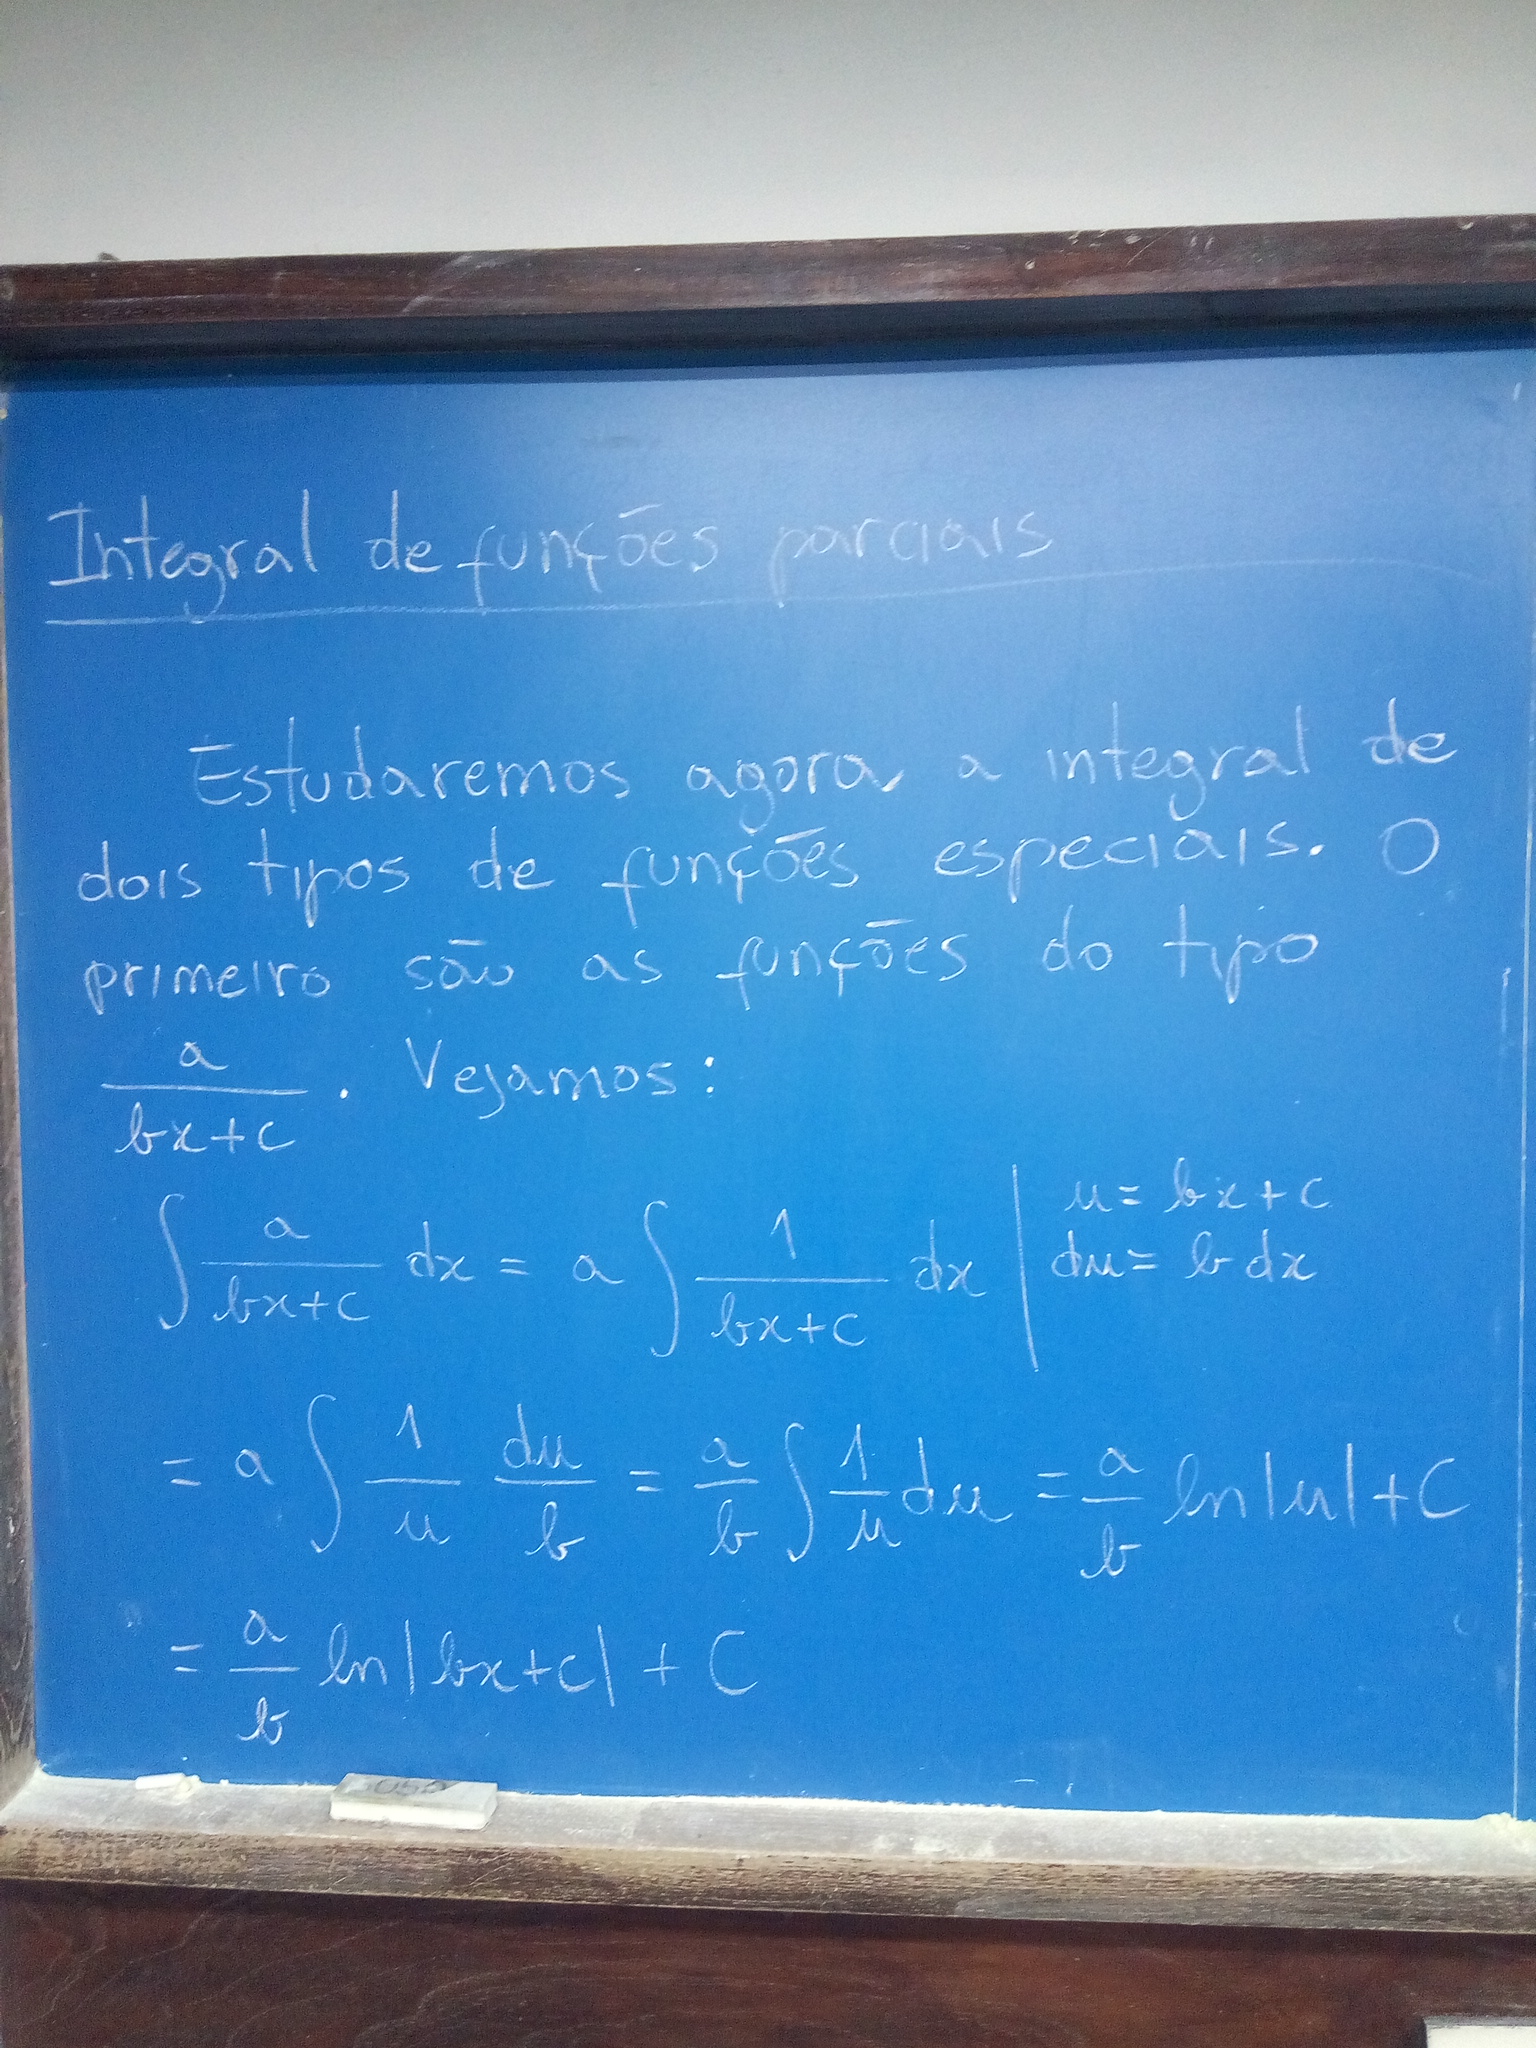 Integral de funções parciais
Estudaremos agora a integral de
dois tipos de funções especiais. O
primeiro são as funções do tipo
a/(bx+c). Vejamos:
∫ a/(bx+c) dx = a ∫ 1/(bx+c) dx | u = bx+c
du = b dx
= a ∫ 1/u du/b = a/b ∫ 1/u du = a/b ln|u| + C
= a/b ln|bx+c| + C